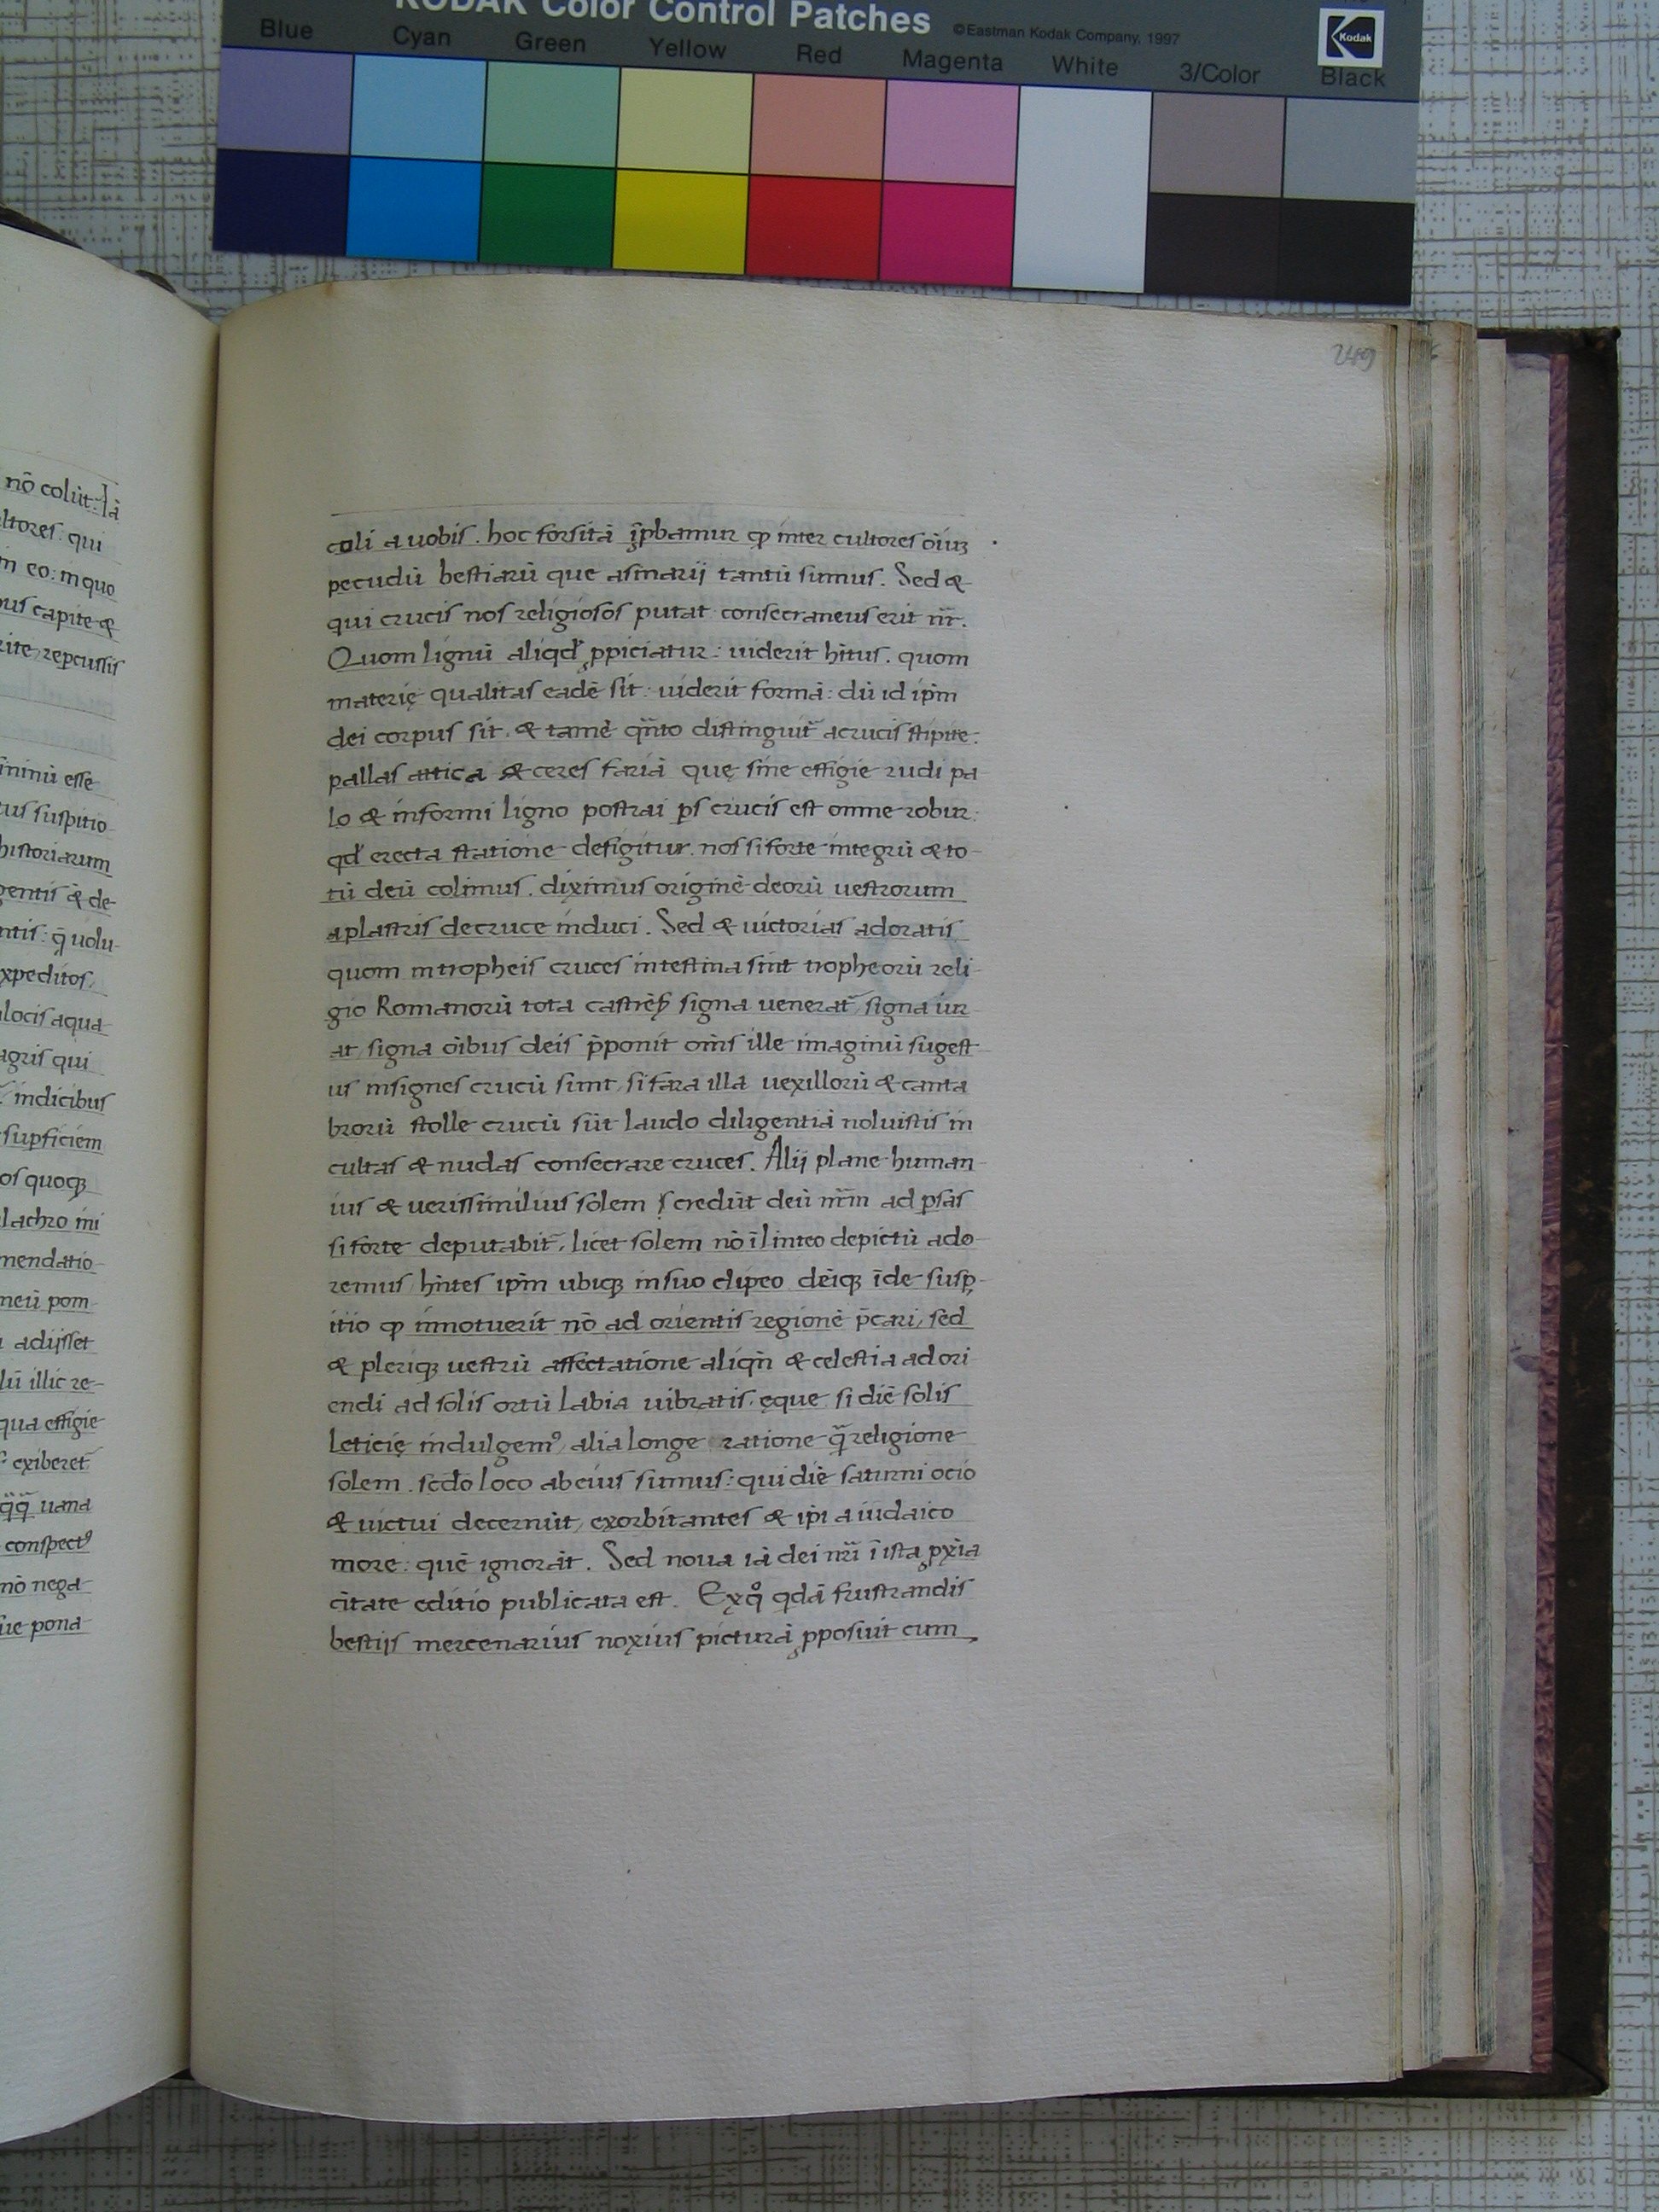 KODAK Color Control Patches
©Eastman Kodak Company, 1997
Kodak
Blue Cyan Green Yellow Red Magenta White 3/Color Black
249
nō colūt: Iā
ltores: qui
m eo: in quo
us capite &
rite repcussis
ininū esse
tus suspitio
historiarum
gentis & de
ntis: q̄ uolu
expeditos
locis aqua
agris qui
indicibus
supficiem
os quoqꝫ
lachro ini
mendatio
neū pom
adijsset
lū illic re
qua effigie
exiberet
uana
conspectꝰ
nō nega
ue pona
coli a uobis . hoc forsitā īꝓbamur ꝙ inter cultores oīuꝫ
pecudū bestiarū que asinarij tantū sumus . Sed &
qui crucis nos religiosos putat consecraneus erit nr̄.
Quom lignū aliqd̕ ꝓpiciatur : uiderit hītus . quom
materię qualitas eadē sit : uiderit formā : dū id ip̄m
dei corpus sit . & tamē qn̄to distinguit᷑ a crucis stipite :
pallas attica & ceres fariā que sine effigie rudi pa
lo & informi ligno postrai p̱s crucis est omne robur :
qd̕ erecta statione defigitur . nos si forte integrū & to
tū deū colimus . diximus originē deorū uestrorum
a plastris de cruce induci . Sed & uictorias adoratis
quom in tropheis cruces intestina sint tropheorū reli
gio Romanorū tota castrēẜ signa uenerat᷑ signa iur
at signa oībus deis p̄ponit om̄s ille imaginū sugest
us insignes crucū sunt si fara illa uexillorū & canta
brorū stolle crucū sūt laudo diligentiā noluistis in
cultas & nudas consecrare cruces . Alij plane human
ius & uerissimilius solem credūt deū nr̄m ad ꝑsas
si forte deputabit᷑ . licet solem nō ī linteo depictū ado
remus hn̄tes ip̄m ubiqꝫ in suo clipeo dēiqꝫ īde susp
itio ꝙ innotuerit nō ad orientis regionē p̄cari , sed
& pleriqꝫ uestrū affectatione aliqn̄ & celestia adori
endi ad solis ortū labia uibratis . eque si diē solis
leticię indulgemꝰ , alia longe ratione q̄ religione
solem . scd̄o loco ab eius sumus : qui diē saturni ocio
& uictui decernūt , exorbitantes & ip̄i a iudaico
more : quē ignorāt . Sed noua iā dei nr̄i ī ista ꝓxīa
cītate editio publicata est . Ex qͦ qdā frustrandis
bestijs mercenarius noxius picturā ꝓposuit cum